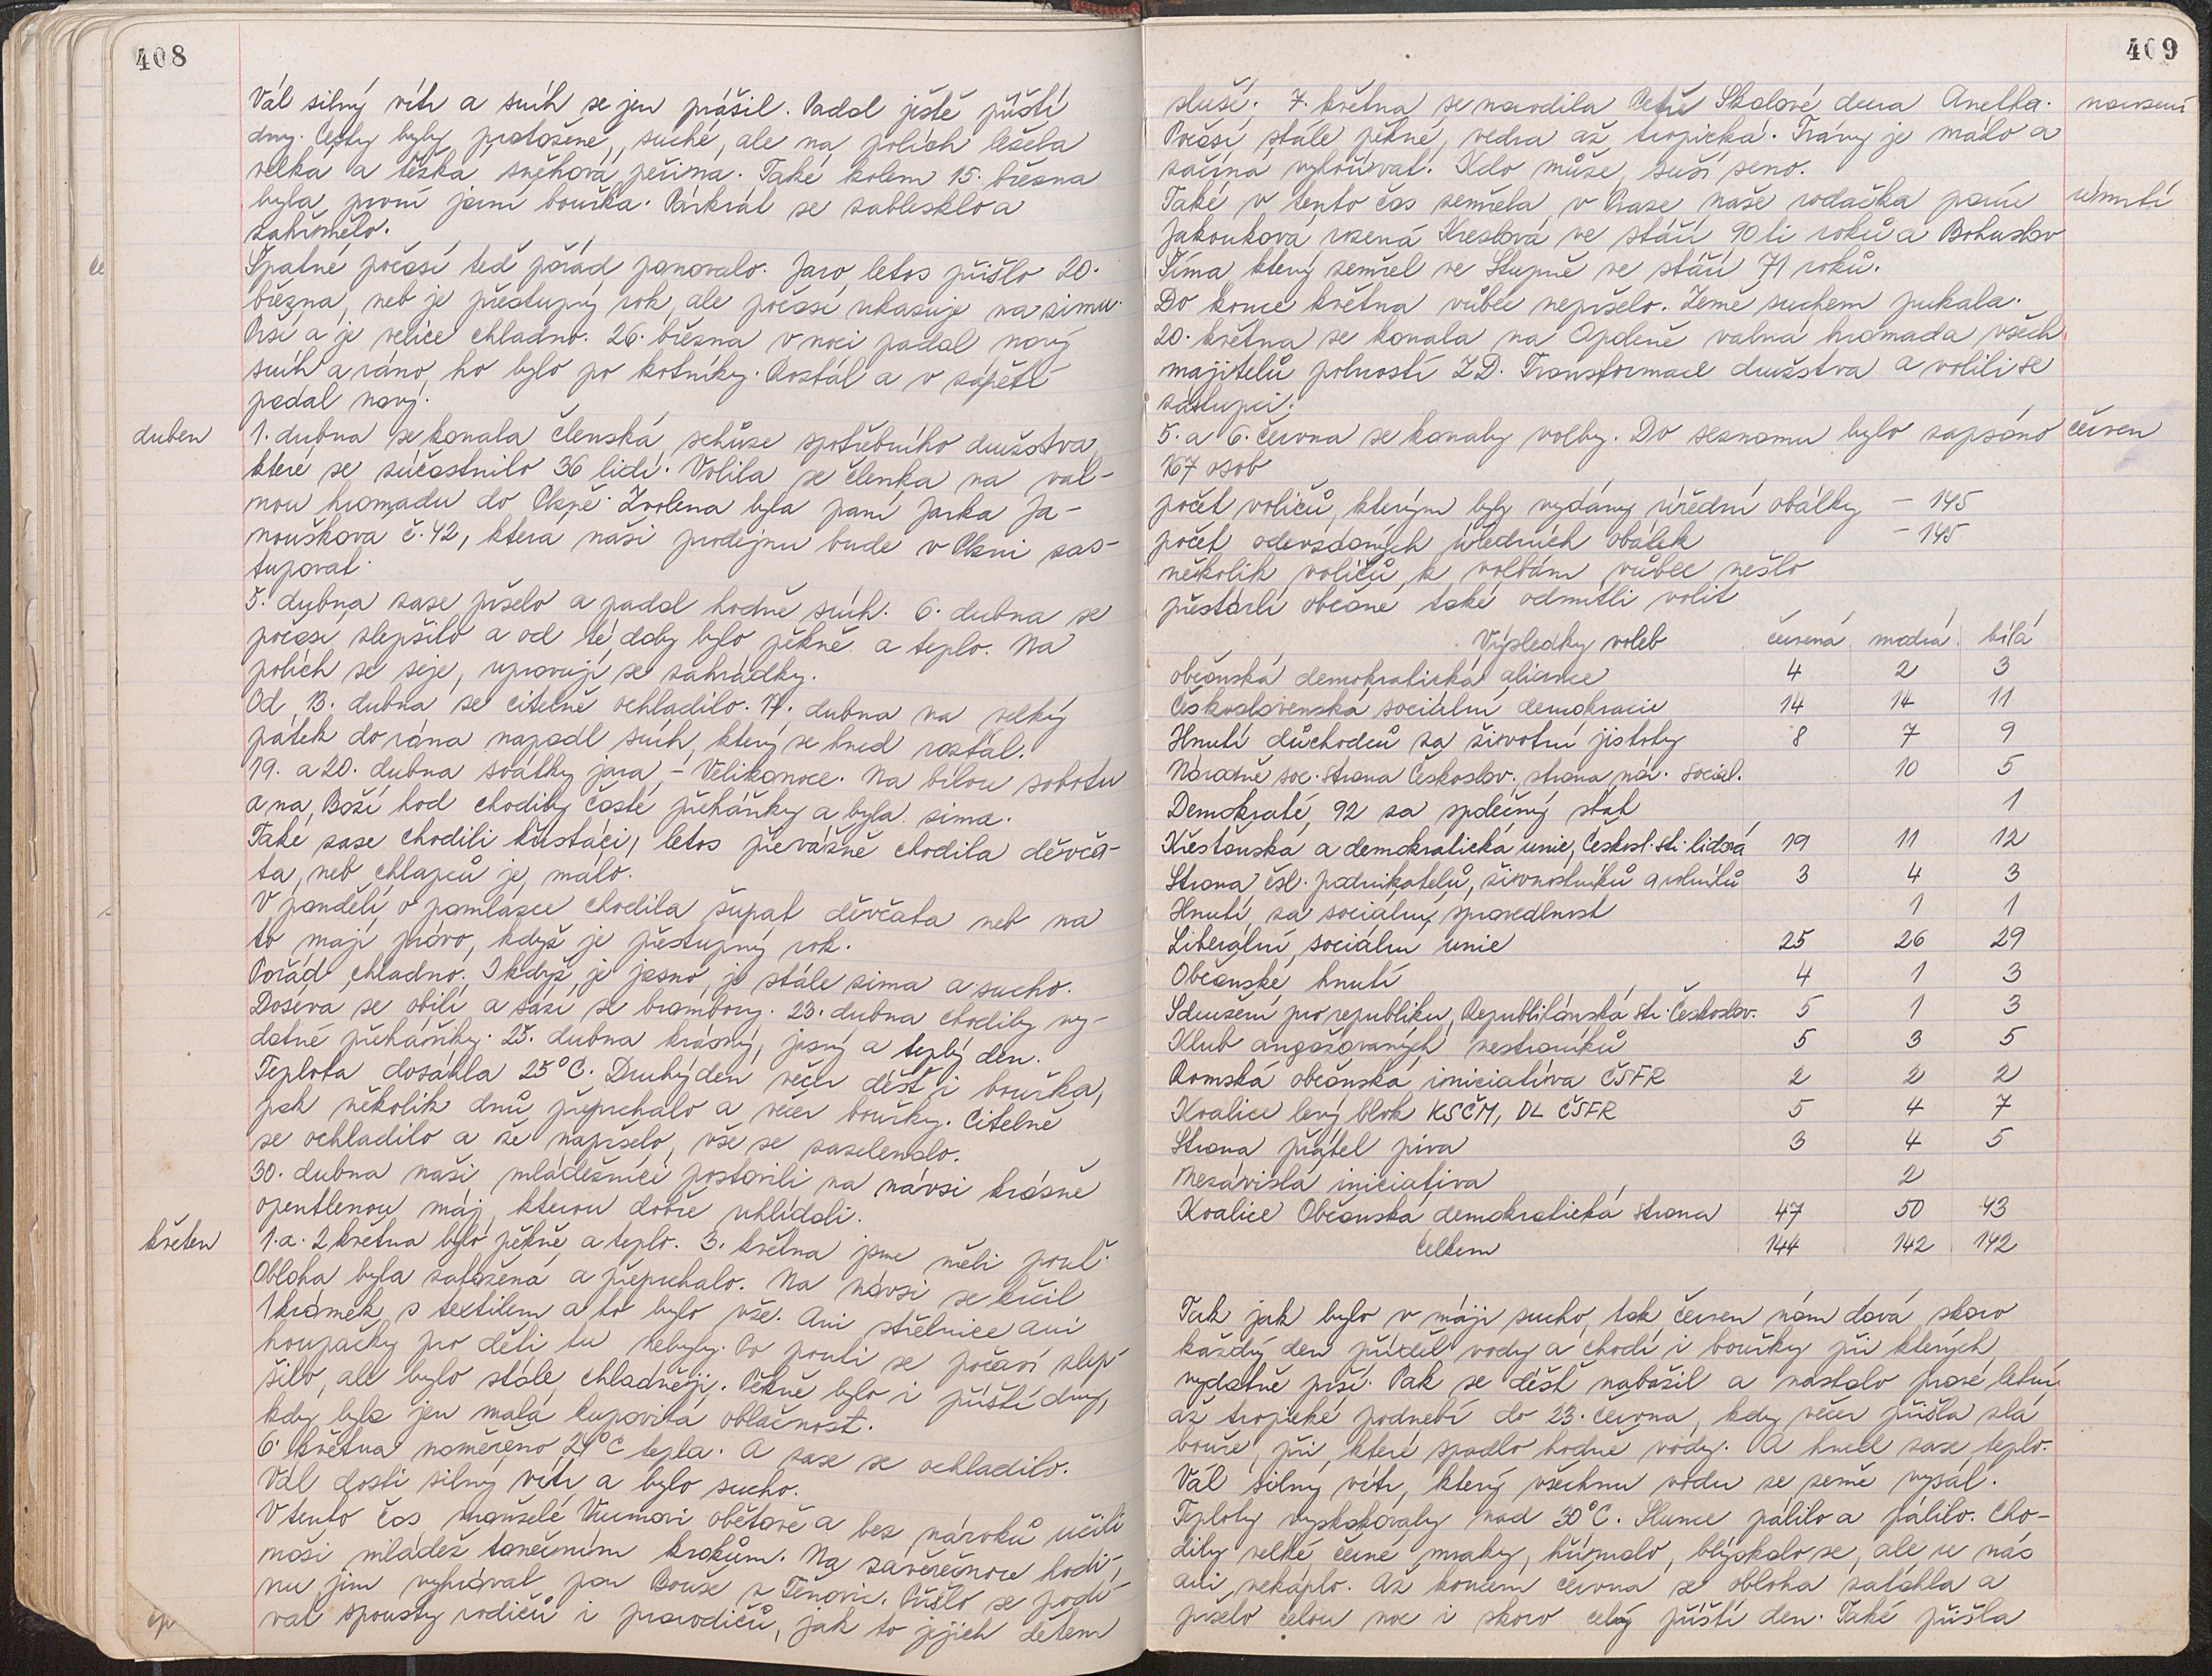 408
Vál silný vítr a sníh se jen prášil. Padal ještě příští
dny. Cesty byly protožené, suché, ale na polích ležela
velká a těžká sněhová peřina. Také kolem 15. března
byla první jarní bouřka. Párkrát se zablesklo a
zahřmělo.
Špatné počasí teď pořád panovalo. Jaro letos přišlo 20.
března, neb je přestupný rok, ale počasí ukazuje na zimu.
Prší a je velice chladno. 26. března v noci padal nový
sníh a ráno ho bylo po kotníky. Roztál a v zápětí
padal nový.
duben
1. dubna se konala členská schůze spotřebního družstva,
které se zúčastnilo 36 lidí. Volila se členka na val-
nou hromadu do Plzně. Zvolena byla paní Jarka Ja-
noušková č. 42, která naši prodejnu bude v Plzni zas-
tupovat.
5. dubna zase pršelo a padal hodně sníh. 6. dubna se
počasí zlepšilo a od té doby bylo pěkně a teplo. Na
polích se seje, upravují se zahrádky.
Od 13. dubna se citelně ochladilo. 17. dubna na velký
pátek do rána napadl sníh, který se hned roztál.
19. a 20. dubna svátky jara - Velikonoce. Na bílou sobotu
a na Boží hod chodily časté přeháňky a byla zima.
Také zase chodili křístáči, letos převážně chodila děvča-
ta, neb chlapců je málo.
V pondělí o pomlázce chodila šupat děvčata neb na
to mají právo, když je přestupný rok.
Pořád chladno. I když je jasno, je stále zima a sucho.
Doseva se obilí a sází se brambory. 23. dubna chodily vy-
datné přeháňky. 25. dubna krásný, jasný a teplý den.
Teplota dosáhla 25°C. Druhý den večer déšť i bouřka,
pak několik dnů přeprchalo a večer bouřky. Citelně
se ochladilo a že napršelo, vše se zazelenalo.
30. dubna naši mládežníci postavili na návsi krásně
opentlenou máj, kterou dobře uhlídali.
květen
1. a 2 května bylo pěkně a teplo. 3. května jsme měli pouť.
Obloha byla zatažená a přeprchalo. Na návsi se krčil
1 krámek s textilem a to bylo vše. Ani střelnice ani
houpačky pro děti tu nebyly. Po pouti se počasí zlep-
šilo, ale bylo stále chladněji. Pěkně bylo i příští dny,
kdy byla jen malá kupovitá oblačnost.
6. května naměřeno 24°C tepla. A zase se ochladilo.
Vál dosti silný vítr a bylo sucho.
V tento čas manželé obětavě a bez nároků učili
naši mládež tanečním krokům. Na závěrečnou hodi-
nu jim vyhrával pan Bouše z Těnovic. Přišlo se podí-
vat spousty rodičů i prarodičů, jak to jejich dětem
409
sluší. 7. května se narodila Petře Skalové dcera Anetka.
narození
Počasí stále pěkné, vedra až tropická. Trávy je málo a
začíná vyhořívat. Kdo může, suší seno.
Také v tento čas zemřela v Praze naše rodačka paní
úmrtí
Jakoubková rozená Kreslová ve stáří 90 ti roků a Bohuslav
Tíma který zemřel ve Stupně ve stáří 71 roků.
Do konce května vůbec nepršelo. Země suchem pukala.
20. května se konala na valná hromada všech
majitelů polností Z.D. Transformace družstva a volili se
zástupci.
5. a 6. června se konaly volby. Do seznamu bylo zapsáno
červen
167 osob
počet voličů, kterým byly vydány úřední obálky - 145
počet odevzdaných úředních obálek - 145
několik voličů k volbám vůbec nešlo
přestárlí občané také odmítli volit
Výsledky voleb červená modrá bílá
občanská demokratická aliance 4 2 3
Československá sociální demokracie 14 14 11
Hnutí důchodců za životní jistoty 8 7 9
Národně soc. strana Českoslov. strana nár. social. 10 5
Demokraté 92 za společný stát 1
Křesťanská a demokratická unie, Českosl. str. lidová 19 11 12
Strana čsl. podnikatelů, živnostníků a rolníků 3 4 3
Hnutí za sociálny spravedlnost 1 1
Liberální sociální unie 25 26 29
Občanské hnutí 4 1 3
Sdružení pro republiku, Republikánská str. Českoslov. 5 1 3
Klub angažovaných nestraníků 5 3 5
Romská občanská iniciativa ČSFR 2 2 2
Koalice levý blok KSČM, DL ČSFR 5 4 7
Strana přátel piva 3 4 5
Nezávislá iniciativa 2
Koalice Občanská demokratická strana 47 50 43
Celkem 144 142 142
Tak jak bylo v máji sucho, tak červen nám dává skoro
každý den příděl vody a chodí i bouřky při kterých
vydatně prší. Pak se déšť nabažil a nastalo pravé letní
až tropické podnebí do 23. června, kdy večer přišla zlá
bouře, při které spadlo hodně vody. A hned zase teplo.
Vál silný vítr, který všechnu vodu ze země vysál.
Teploty vyskakovaly nad 30°C. Slunce pálilo a pálilo. Cho-
dily velké černé mraky, hřímalo, blýskalo se, ale u nás
ani nekáplo. Až koncem června se obloha zatáhla a
pršelo celou noc i skoro celý příští den. Také přišla